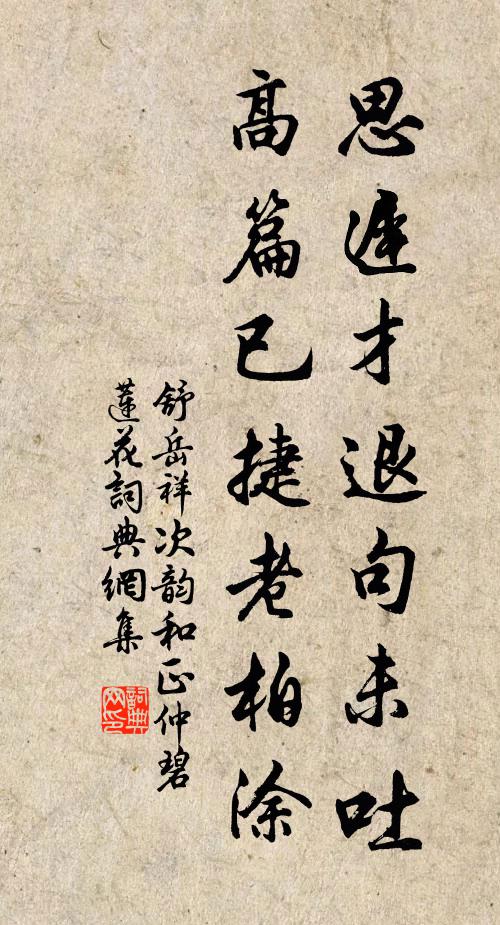 思遲才退句未吐
高篇已捷老柏涂
舒岳祥次韵和正仲碧
蓮花詞典網集
詞典网印